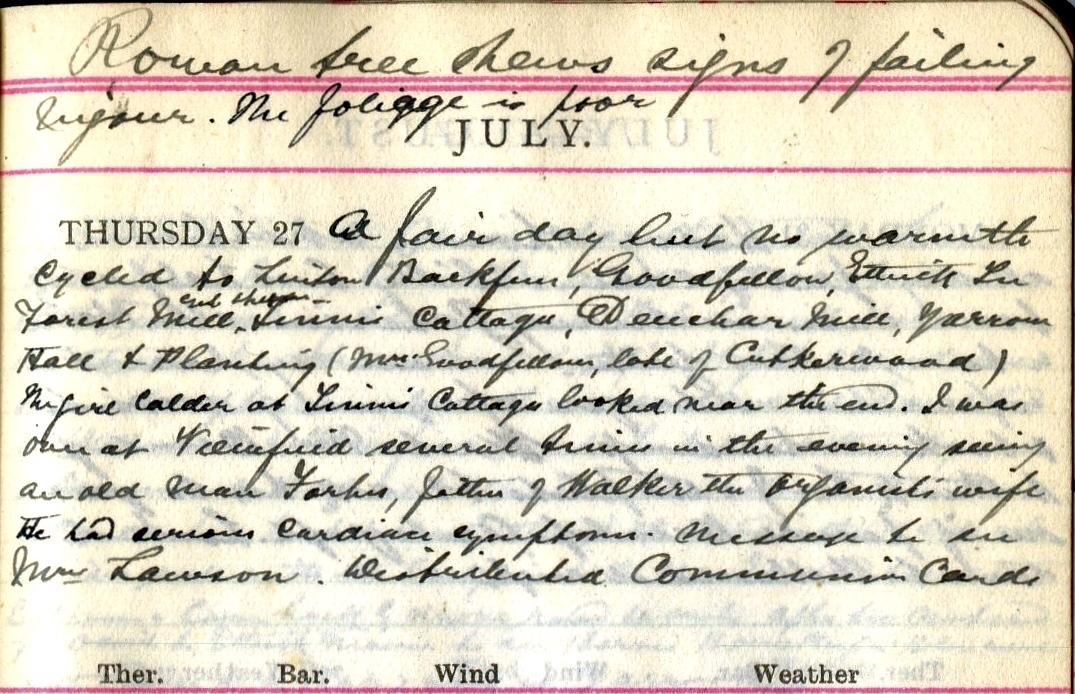 Rowan tree shews signs of failing
vigour. The foliage is poor
JULY.
THURSDAY 27 A fair day but no warmth
Cycled to Linton Backfun, Goodfellow, Ettrick
and
Forest Mill, Linnie Cottage, Deuchar Mill, Yarrow
Hall & Planting (Mrs Goodfellow, late of )
The girl Calder at Linnie Cottage looked near the end. I was
over at Viewfield several times in the evening seeing
an old man Forbes, father of Walker the organist's wife
He had serious cardiac symptoms. Message to see
Mrs Lawson. Distributed Communion Cards
Ther. Bar. Wind Weather